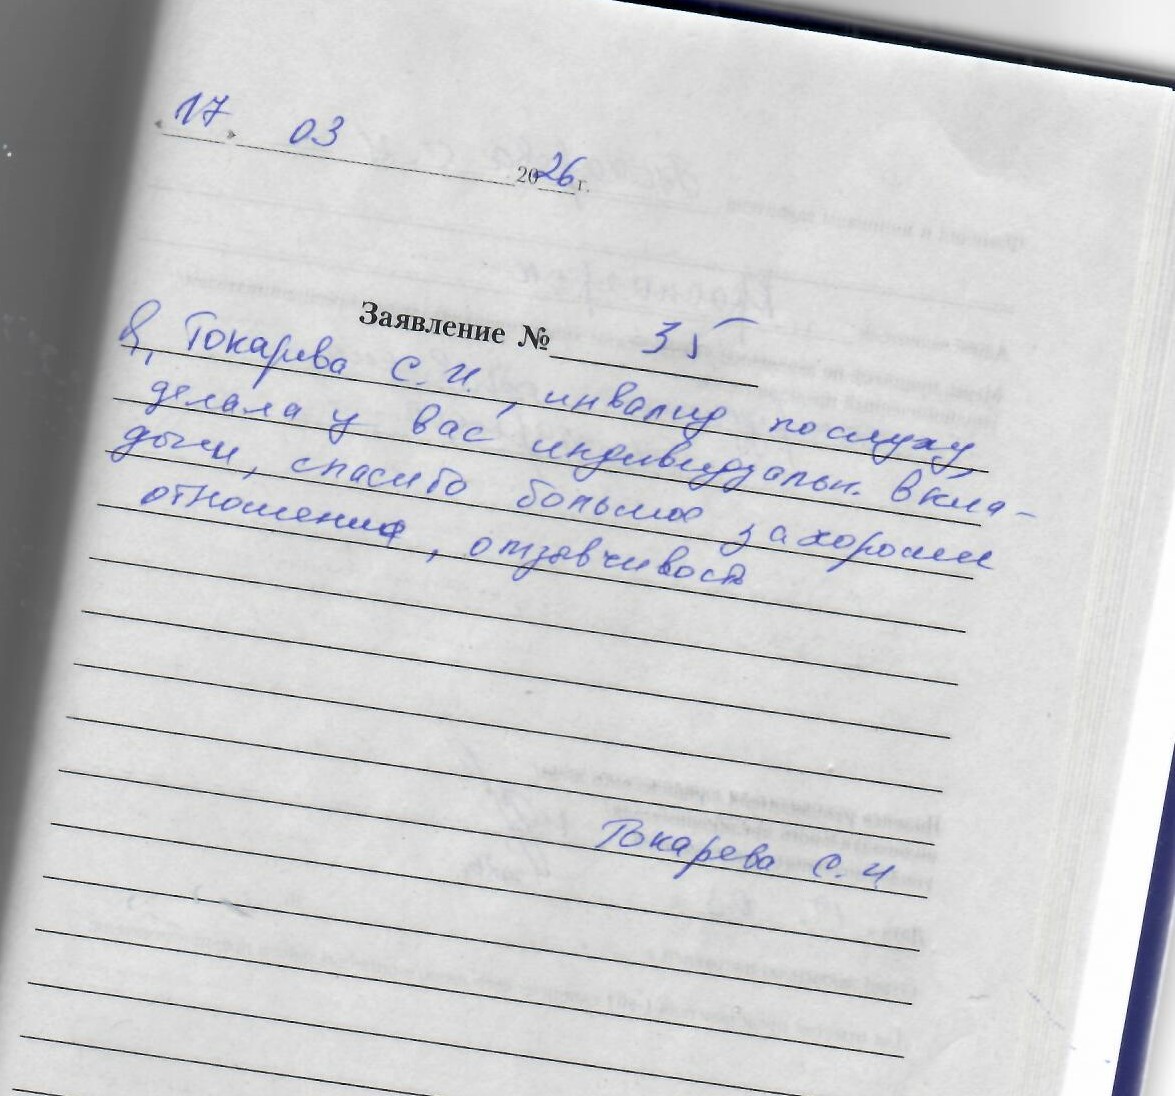 « 17 » 03 2026 г.
Заявление № 35
Я, Токарева С. И., инвалид по слуху,
делала у вас индивидуальн. вкла-
дыши, спасибо большое за хорошее
отношение, отзывчивость
Токарева С. И